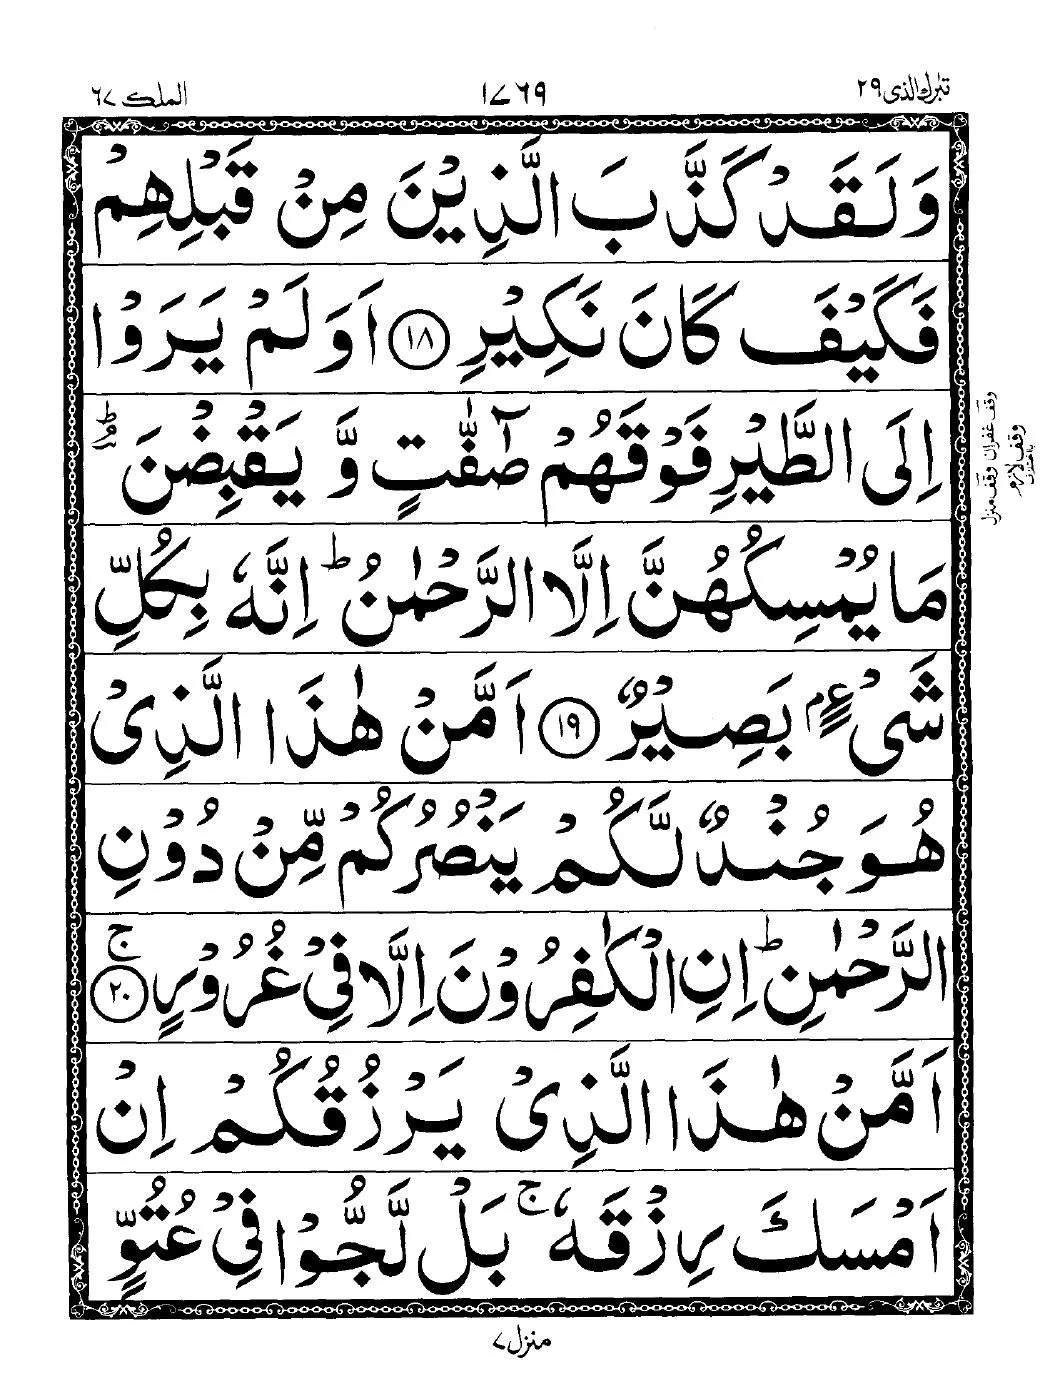 تبٰرك الذی ۲۹
۱۷۶۹
الملك ۶۷
وَلَقَدْ كَذَّبَ الَّذِيْنَ مِنْ قَبْلِهِمْ
فَكَيْفَ كَانَ نَكِيْرِ ۱۸ اَوَلَمْ يَرَوْا
اِلَى الطَّيْرِ فَوْقَهُمْ صٰٓفّٰتٍ وَّ يَقْبِضْنَ ؕۘ
مَا يُمْسِكُهُنَّ اِلَّا الرَّحْمٰنُ ؕ اِنَّهٗ بِكُلِّ
شَیْءٍۭ بَصِيْرٌ ۱۹ اَمَّنْ هٰذَا الَّذِیْ
هُوَ جُنْدٌ لَّكُمْ يَنْصُرُكُمْ مِّنْ دُوْنِ
الرَّحْمٰنِ ؕ اِنِ الْكٰفِرُوْنَ اِلَّا فِیْ غُرُوْرٍ ۚ ۲۰
اَمَّنْ هٰذَا الَّذِیْ يَرْزُقُكُمْ اِنْ
اَمْسَكَ رِزْقَهٗ ۚ بَلْ لَّجُّوْا فِیْ عُتُوٍّ
وقف غفران وقف منزل
وقف لازم
منزل ۷